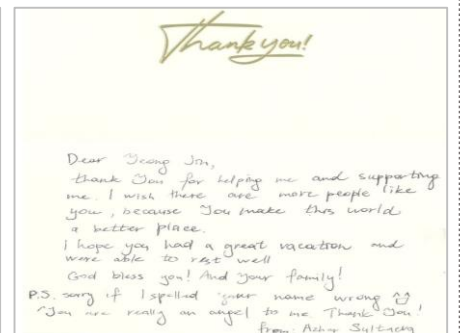 Thank you!
Dear Yeong Jin,
thank you for helping me and supporting
me. I wish there are more people like
you, because you make this world
a better place.
I hope you had a great vacation and
were able to rest well
God bless you! And your family!
P.S. sorry if I spelled your name wrong
You are really an angel to me Thank you!
from Azhar